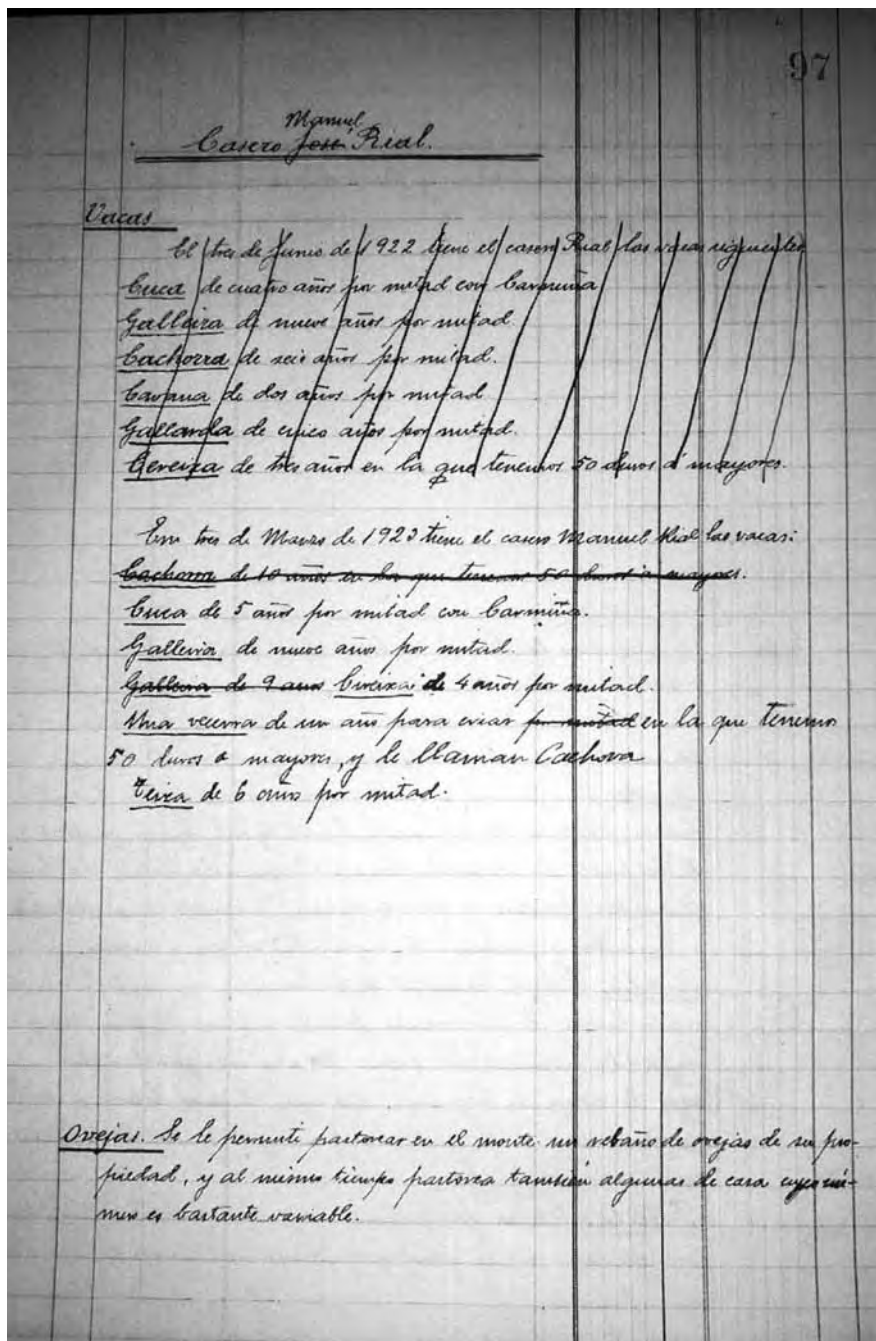 97
Manuel
Casero José Rial.
Vacas
El tres de Junio de 1922 tiene el casero Rial las vacas siguientes
Cuca de cuatro años por mitad con Carmiña
Galleira de nueve años por mitad.
Cachorra de seis años por mitad.
de dos años por mitad
Gallarda de cinco años por mitad.
Cereixa de tres años en la que tenemos 50 duros a mayores.
En tres de Marzo de 1923 tiene el casero Manuel Rial las vacas:
Cachorra de 10 años en la que tenemos 50 duros a mayores.
Cuca de 5 años por mitad con Carmiña.
Galleira de nueve años por mitad.
Galleira de 9 anos Cireixa de 4 años por mitad.
Una vecerra de un año para criar por mitad en la que tenemos
50 duros a mayores, y le llaman Cachova
Teixa de 6 años por mitad.
Ovejas. Se le permite pastorear en el monte un rebaño de ovejas de su pro-
piedad, y al mismo tiempo pastorea también algunas de casa cuyo nú-
mero es bastante variable.